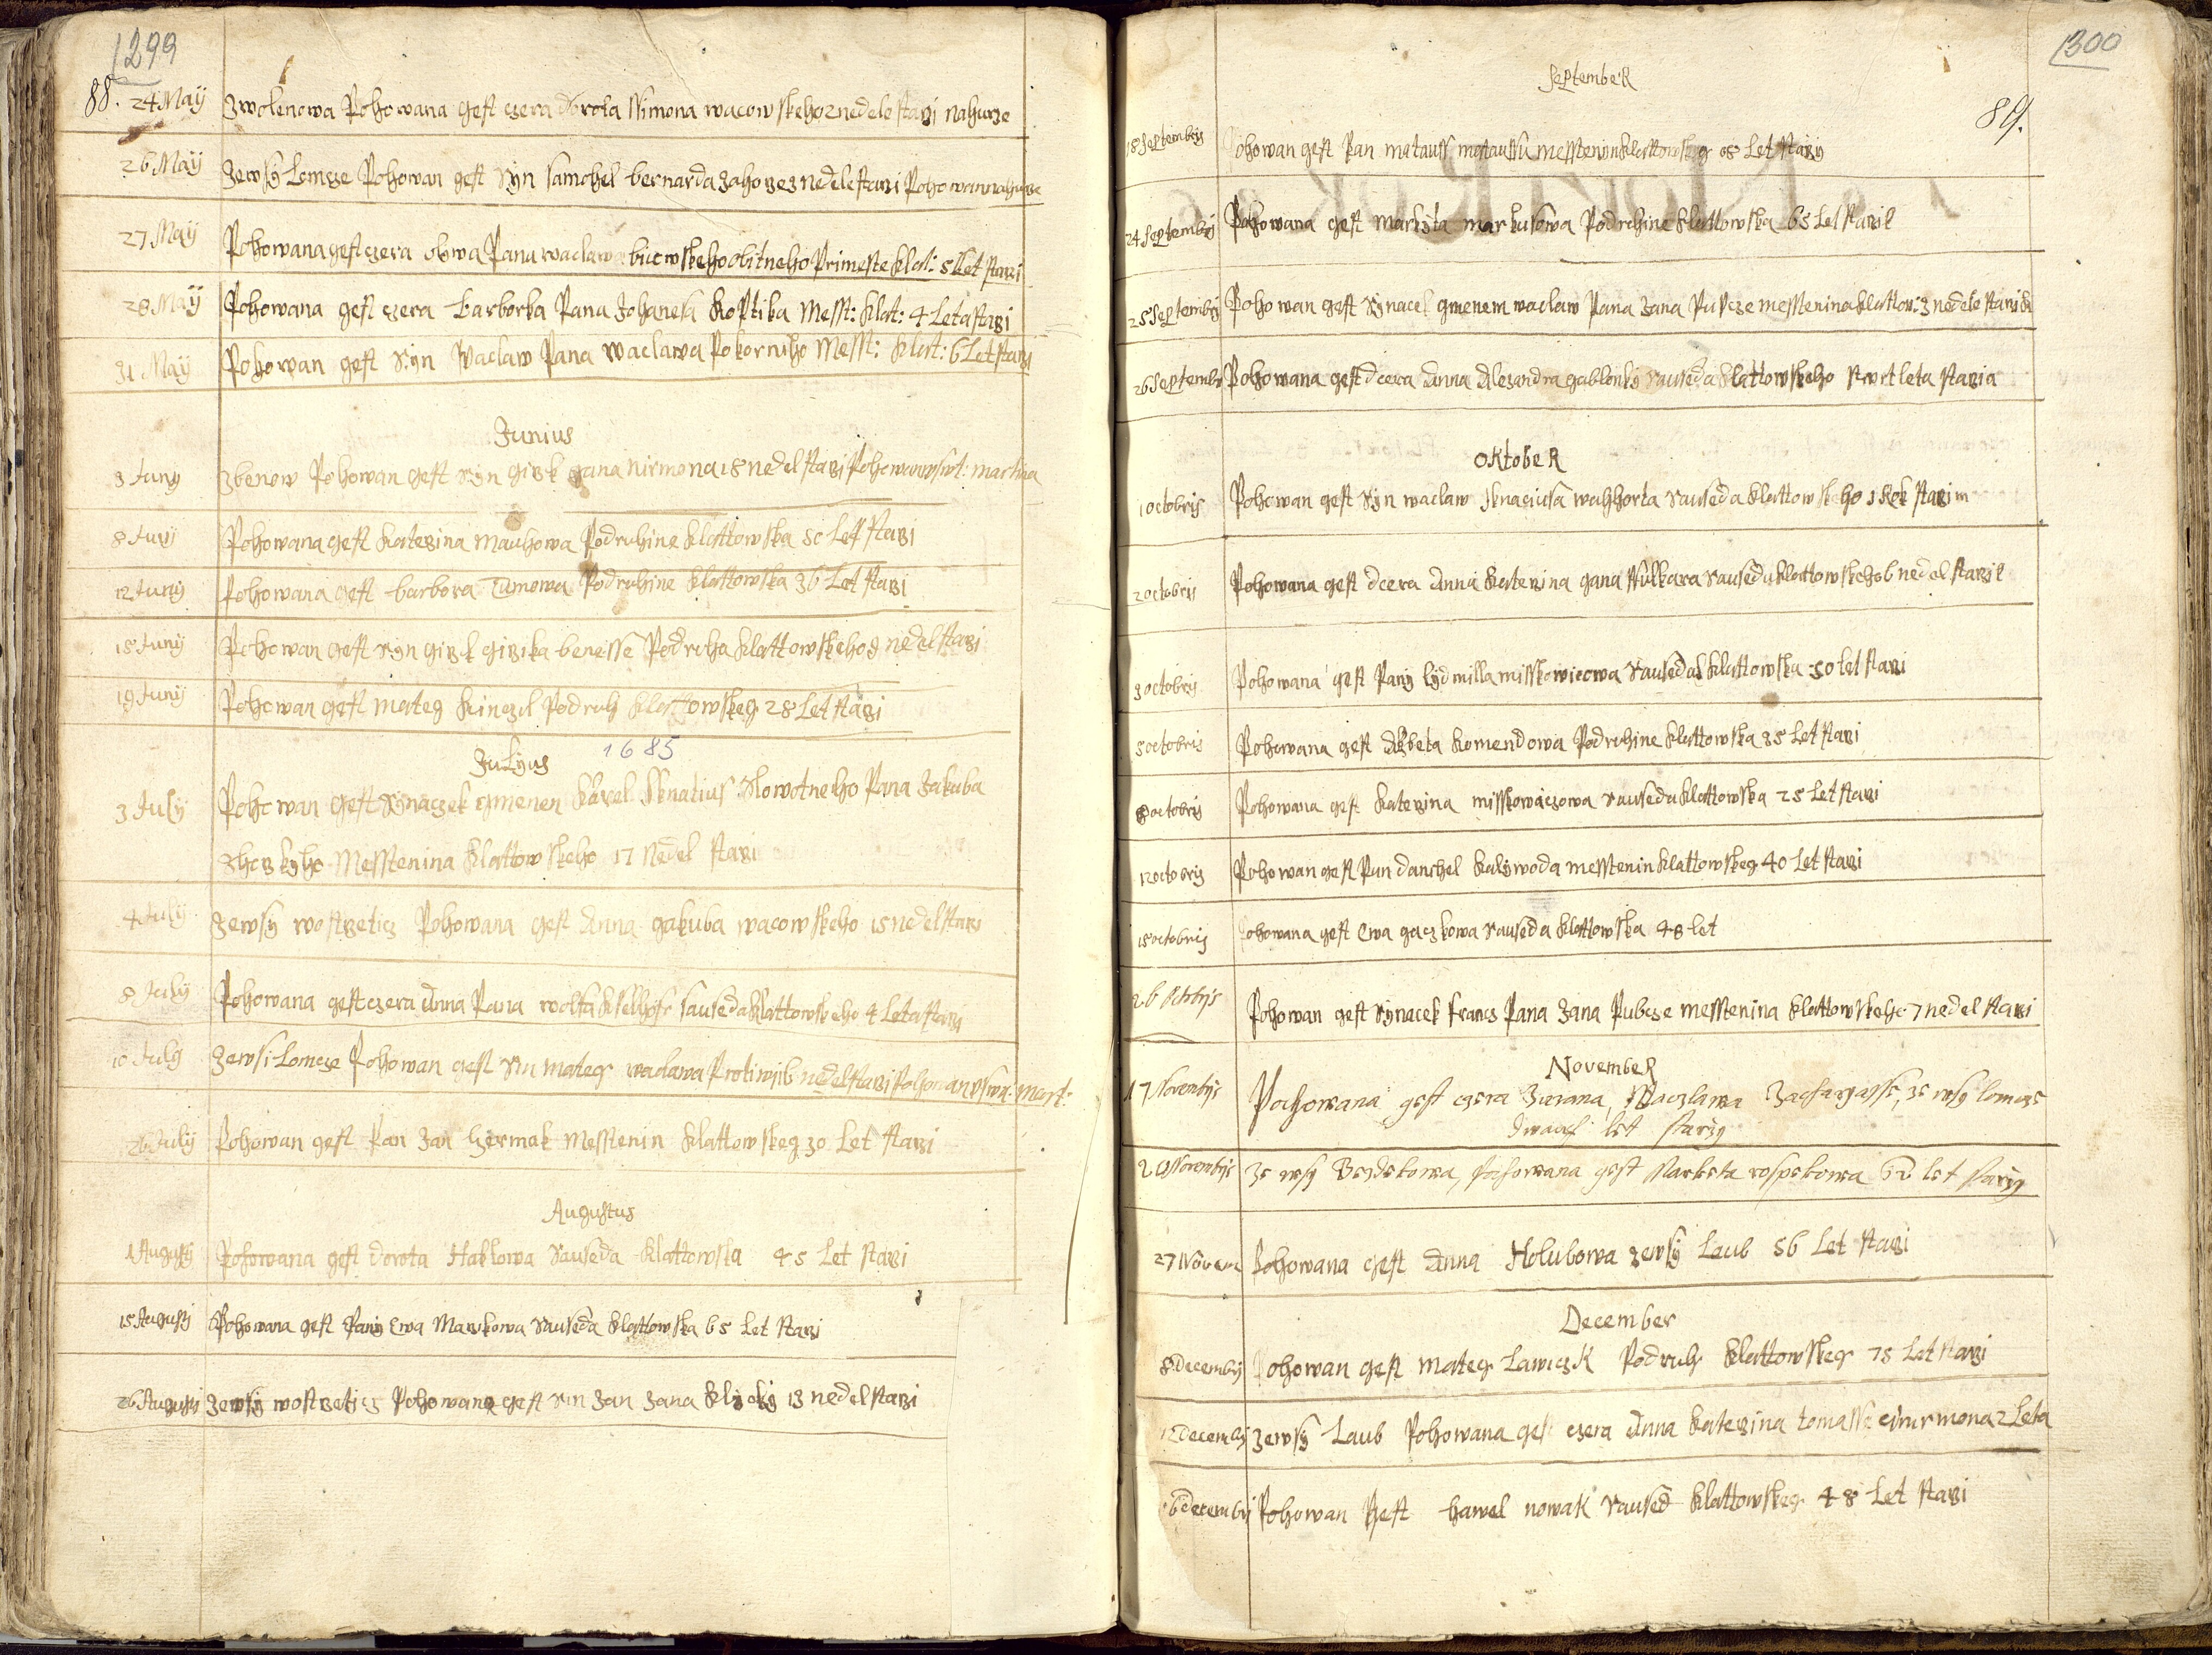 1299
88. 24 Maÿ Zwolenowa Pohowana gest czera dorota Ssimona wacowskeho 2 nedele starzi nahurze
26 Maÿ Zewsy Lomcze Pohowan gest Syn samohel bernarda zahorze 3 nedele starzi Pohowan nahurze
27 Maÿ Pohowana gest czera Pana waclawa obitneho Primeste Klat: 5 Let starzi
28 Maÿ Pohowana gest czera barborka Pana Johanesa Koptika Messt: Klat: 4 Leta starzi
31 Maÿ Pohowan gest Syn Waclaw Pana Waclawa Pokorniho Messt: Klat: 6 Let starzi
Junius
3 Juny Zbenow Pohowan gest Syn girzik gana nirmona 18 nedel starzi Pohowan v swt: martina
8 Juny Pohowana gest Katerzina Mauhowa Podruhine Klattowska 80 Let starzi
12 Juny Pohowana gest barbora Tumowa Podruhine Klattowska 36 Let starzi
18 Juny Pohowan gest Syn girzik girzika benesse Podruha Klattowskeho 9 nedel starzi
19 Juny Pohowan gest mateg Kinczl Podruh Klattowskeg 28 Let starzi
Julyus 1685
3 July Pohowan gest Synaczek gmenem Karel Ignatius Slowotneho Pana Jakuba
Zhorskyho Messtenina Klattowskeho 17 Nedel starzi
4 July Zewsy wostrzeticz Pohowana gest Anna gakuba wacowskeho 15 nedel starzi
8 July Pohowana gest czera Anna Pana wolfa sauseda Klattowskeho 4 Leta starzi
10 July Zewsi Lomcze Pohowan gest Sin mateg waclawa nedel starzi Pohowan v swt: Mart:
26 July Pohowan gest Pan Jan herzmak Messtenin Klattowskeg 30 Let starzi
Augustus
1 Augusty Pohowana gest dorota Hablowa Sauseda Klattowska 45 Let starzi
15 Augusty Pohowana gest Pany Ewa Markowa Sauseda Klattowska 65 Let starzi
26 Augusty Zewsy wostrzeticz Pohowana gest Sin Jan Jana 13 nedel starzi
1300
89.
September
18 Septembrij Pohowan gest Pan matauss mataussu messtenin Klattowskeg 68 Let starzy
24 Septembrij Pohowana gest markyta markusowa Podruhine Klattowska 65 Let starzi
25 Septembrij Pohowan gest Synacek gmenem waclaw Pana Jana Pupcze messtenina Klattow: 3 nedele
26 Septembrij Pohowana gest dcera Anna Alexandra gablonky Sauseda Klattowskeho stwrt leta starzia
OktobeR
1 octobris Pohowan gest Syn waclaw Ignaciusa wahhorta Sauseda Klattowskeho 1 Rok
2 octobris Pohowana gest dcera Anna Katerzina gana Sauseda Klattowskeho 6 nedel
3 octobris Pohowana gest Pany lydmilla misskowicowa Sauseda Klattowska 50 let starzi
5 octobris Pohowana gest Alzbeta Komendowa Podruhine Klattowska 35 Let starzi
8 octobris Pohowana gest Katerzina misskowiczowa Sauseda Klattowska 25 Let starzi
12 octobris Pohowan gest Pan danihel Kalywoda messtenin Klattowskeg 40 Let starzi
15 octobris Pohowana gest Ewa gaczkowa Sauseda Klattowska 48 let
26 Pohowan gest Synacek francz Pana Jana Pubcze messtenina Klattowskeho 7 nedel starzi
NovembeR
17 Novembris Pochowana gest czera Zuzana, Waczlawa Zacharyasse, ze wsy lomcze
dwanact let starzy
20 Novembris Ze wsy Bezdekowa, Pochowana gest Markéta 62 let starzy
27 Novem Pohowana gest Anna Holubowa zewsy Laub 56 Let starzi
December
8 Decembrij Pohowan gest mateg Lawiczk Podruh Klattowskeg 75 Let starzi
12 decembrij zewsy Laub Pohowana gest czera Anna Katerzina tomasse 2 Leta
16 decembrij Pohowan gest hawel nowak Saused Klattowskeg 48 Let starzi